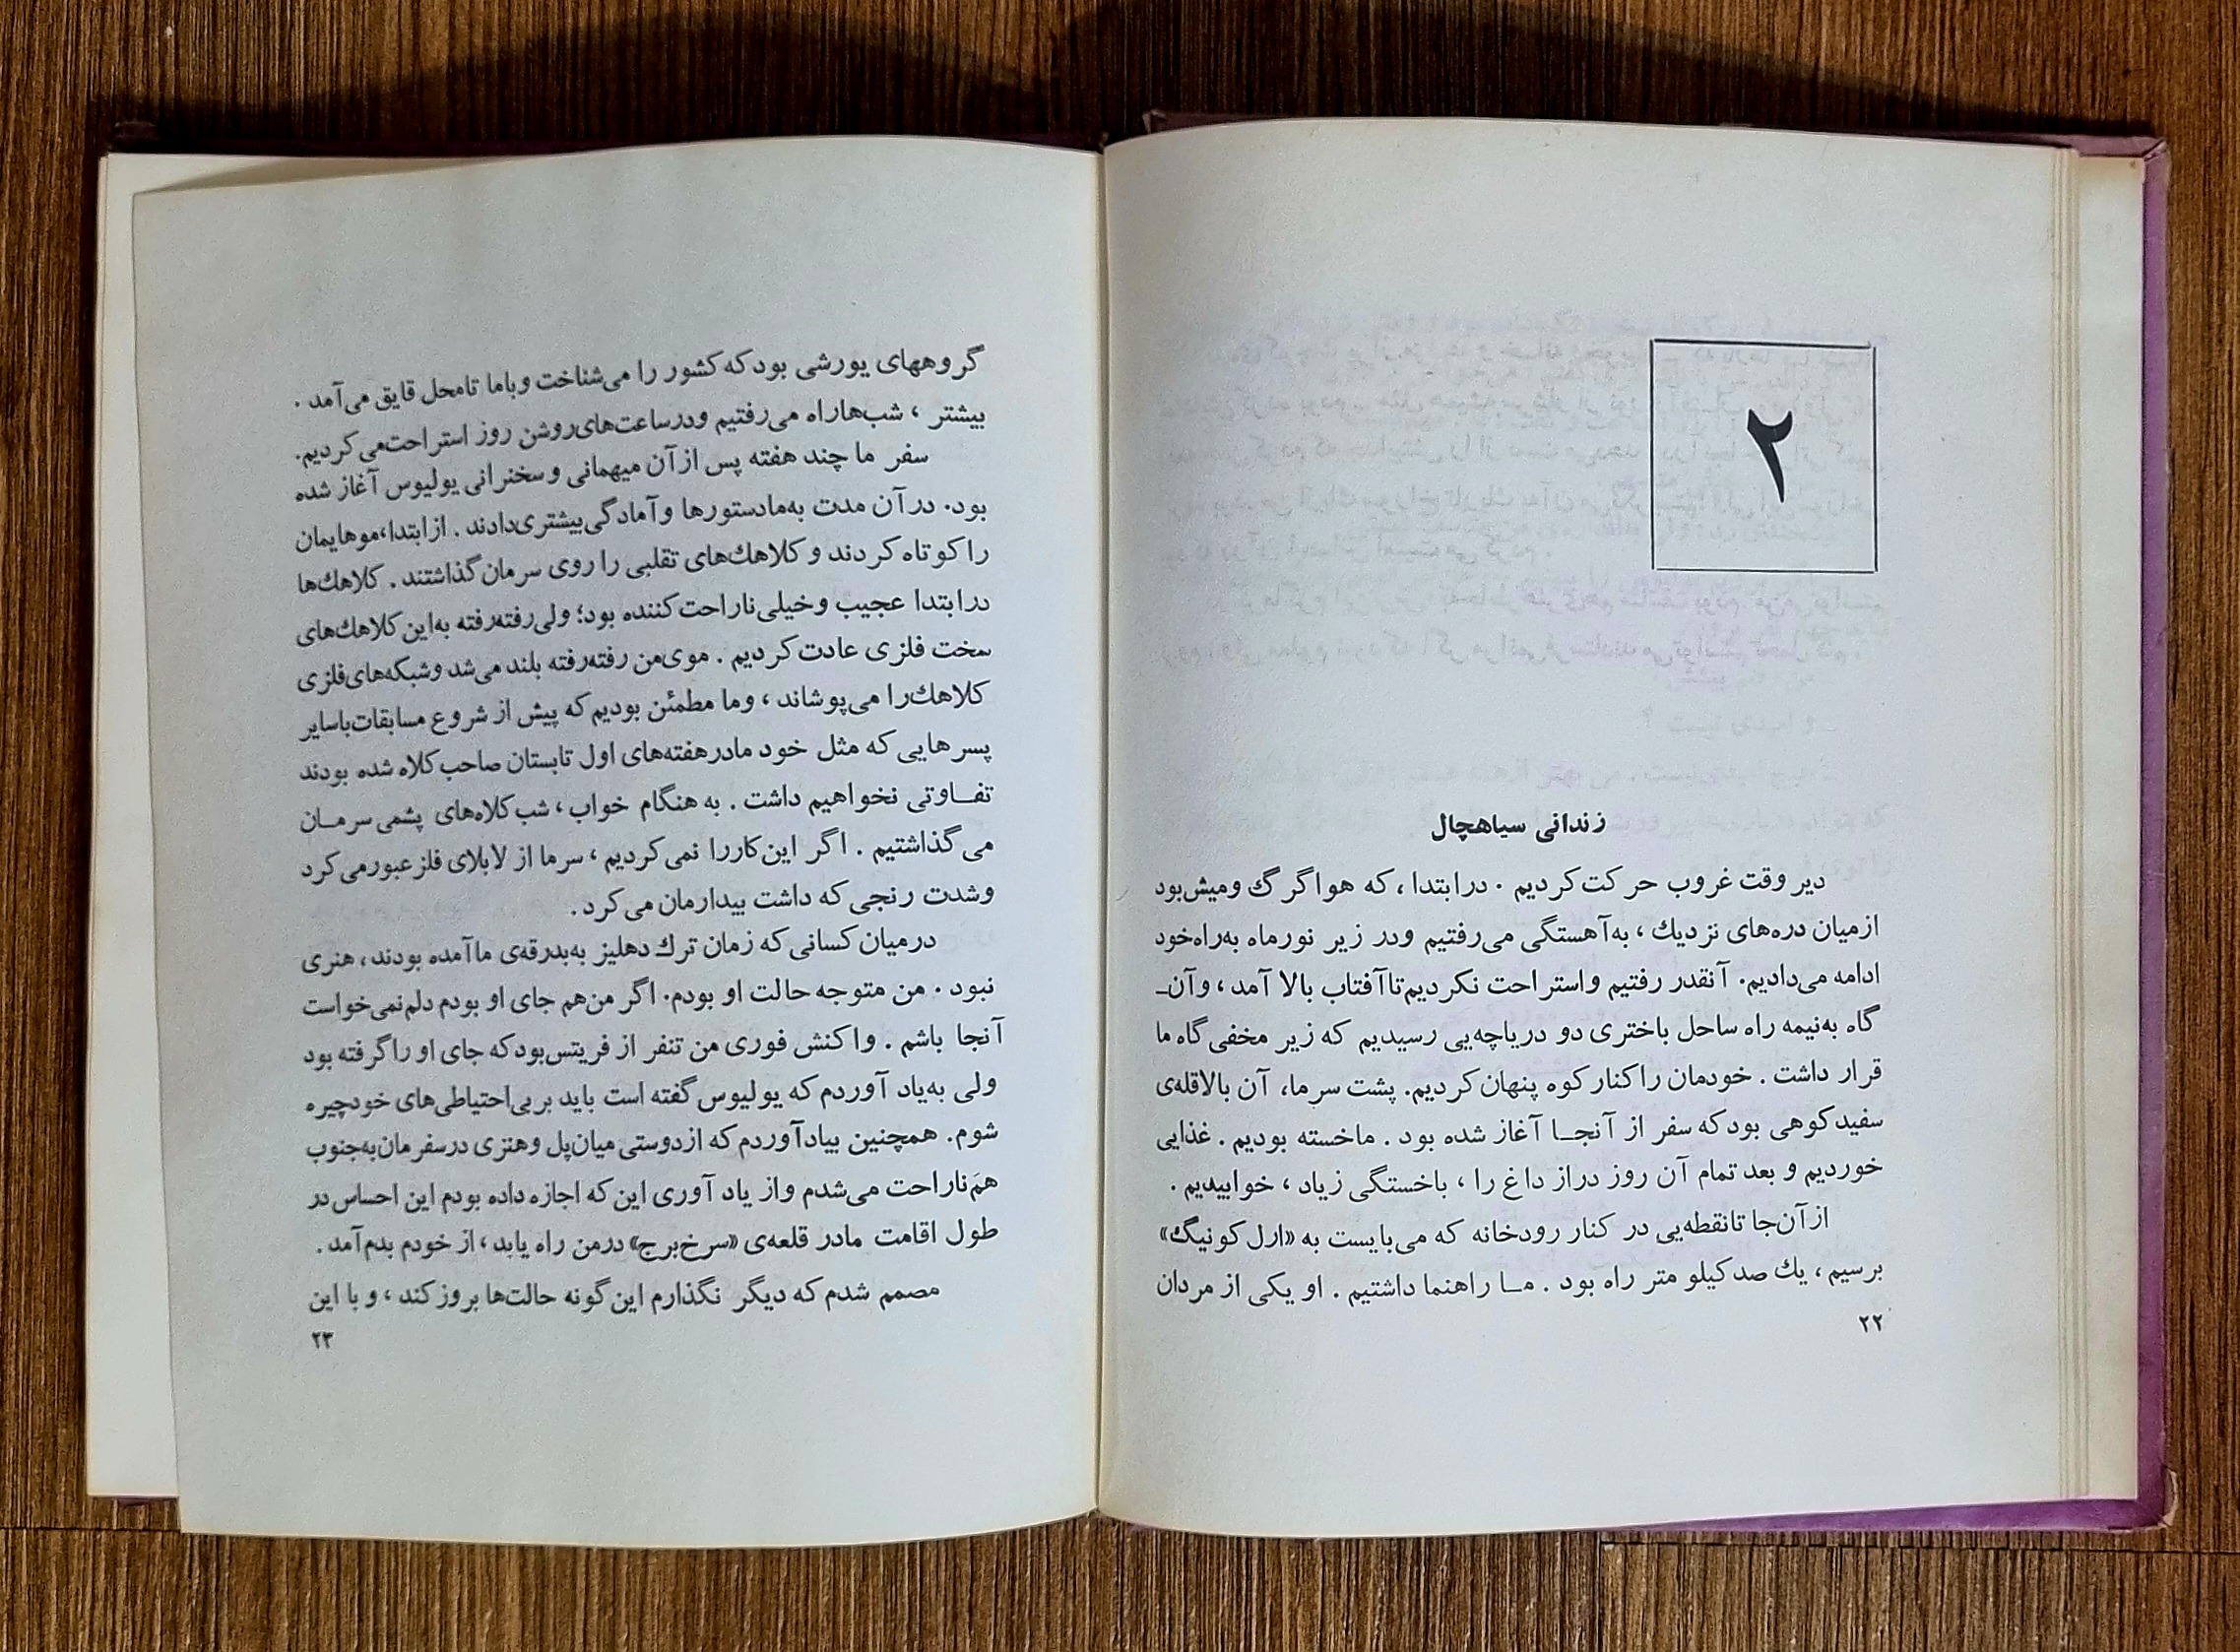 ۲
زندانی سیاهچال
دیر وقت غروب حرکت کردیم . در ابتدا ، که هوا گرگ و میش بود
از میان دره‌های نزدیك ، به‌آهستگی می‌رفتیم ودر زیر نورماه به‌راه‌خود
ادامه می‌دادیم. آنقدر رفتیم واستراحت نکردیم تاآفتاب بالا آمد ، وآن‌ـ
گاه به‌نیمه راه ساحل باختری دو دریاچه‌یی رسیدیم که زیر مخفی گاه ما
قرار داشت . خودمان را کنار کوه پنهان کردیم. پشت سرما، آن بالاقله‌ی
سفید کوهی بود که سفر از آنجـا آغاز شده بود . ماخسته بودیم . غذایی
خوردیم و بعد تمام آن روز دراز داغ را ، باخستگی زیاد ، خوابیدیم .
از آن‌جا تانقطه‌یی در کنار رودخانه که می‌بایست به «ارل کونیگ»
برسیم ، یك صد کیلو متر راه بود . مـا راهنما داشتیم . او یکی از مردان
۲۲
گروههای یورشی بود که کشور را می‌شناخت وباما تامحل قایق می‌آمد .
بیشتر ، شب‌هاراه می‌رفتیم ودرساعت‌های‌روشن روز استراحت‌می کردیم.
سفر ما چند هفته پس از آن میهمانی و سخنرانی یولیوس آغاز شده
بود. در آن مدت به‌مادستورها و آمادگی‌بیشتری‌دادند . ازابتدا،موهایمان
را کوتاه کردند و کلاهك‌های تقلبی را روی سرمان گذاشتند . کلاهك‌ها
درابتدا عجیب و خیلی ناراحت کننده بود؛ ولی رفته‌رفته به‌این کلاهك‌های
سخت فلزی عادت کردیم . موی‌من رفته‌رفته بلند می‌شد وشبکه‌های‌فلزی
کلاهك‌را می‌پوشاند ، وما مطمئن بودیم که پیش از شروع مسابقات‌باسایر
پسرهایی که مثل خود مادرهفته‌های اول تابستان صاحب‌کلاه شده بودند
تفـاوتی نخواهیم داشت . به هنگام خواب ، شب‌کلاه‌های پشمی سرمـان
می گذاشتیم . اگر این‌کاررا نمی کردیم ، سرما از لابلای فلز عبورمی کرد
وشدت رنجی که داشت بیدارمان می کرد .
درمیان کسانی که زمان ترك دهلیز به‌بدرقه‌ی ماآمده بودند ، هنری
نبود . من متوجه حالت او بودم. اگر من‌هم جای او بودم دلم نمی‌خواست
آنجا باشم . واکنش فوری من تنفر از فریتس بود که جای او را گرفته بود
ولی به‌یاد آوردم که یولیوس گفته است باید بر بی‌احتیاطی‌های خودچیره
شوم. همچنین بیادآوردم که ازدوستی میان‌پل وهنری درسفرمان‌به‌جنوب
هم‌ناراحت می‌شدم واز یاد آوری این که اجازه داده بودم این احساس در
طول اقامت مادر قلعه‌ی «سرخ‌برج» درمن راه یابد ، از خودم بدم آمد .
مصمم شدم که دیگر نگذارم این گونه حالت‌ها بروز کند ، و با این
۲۳